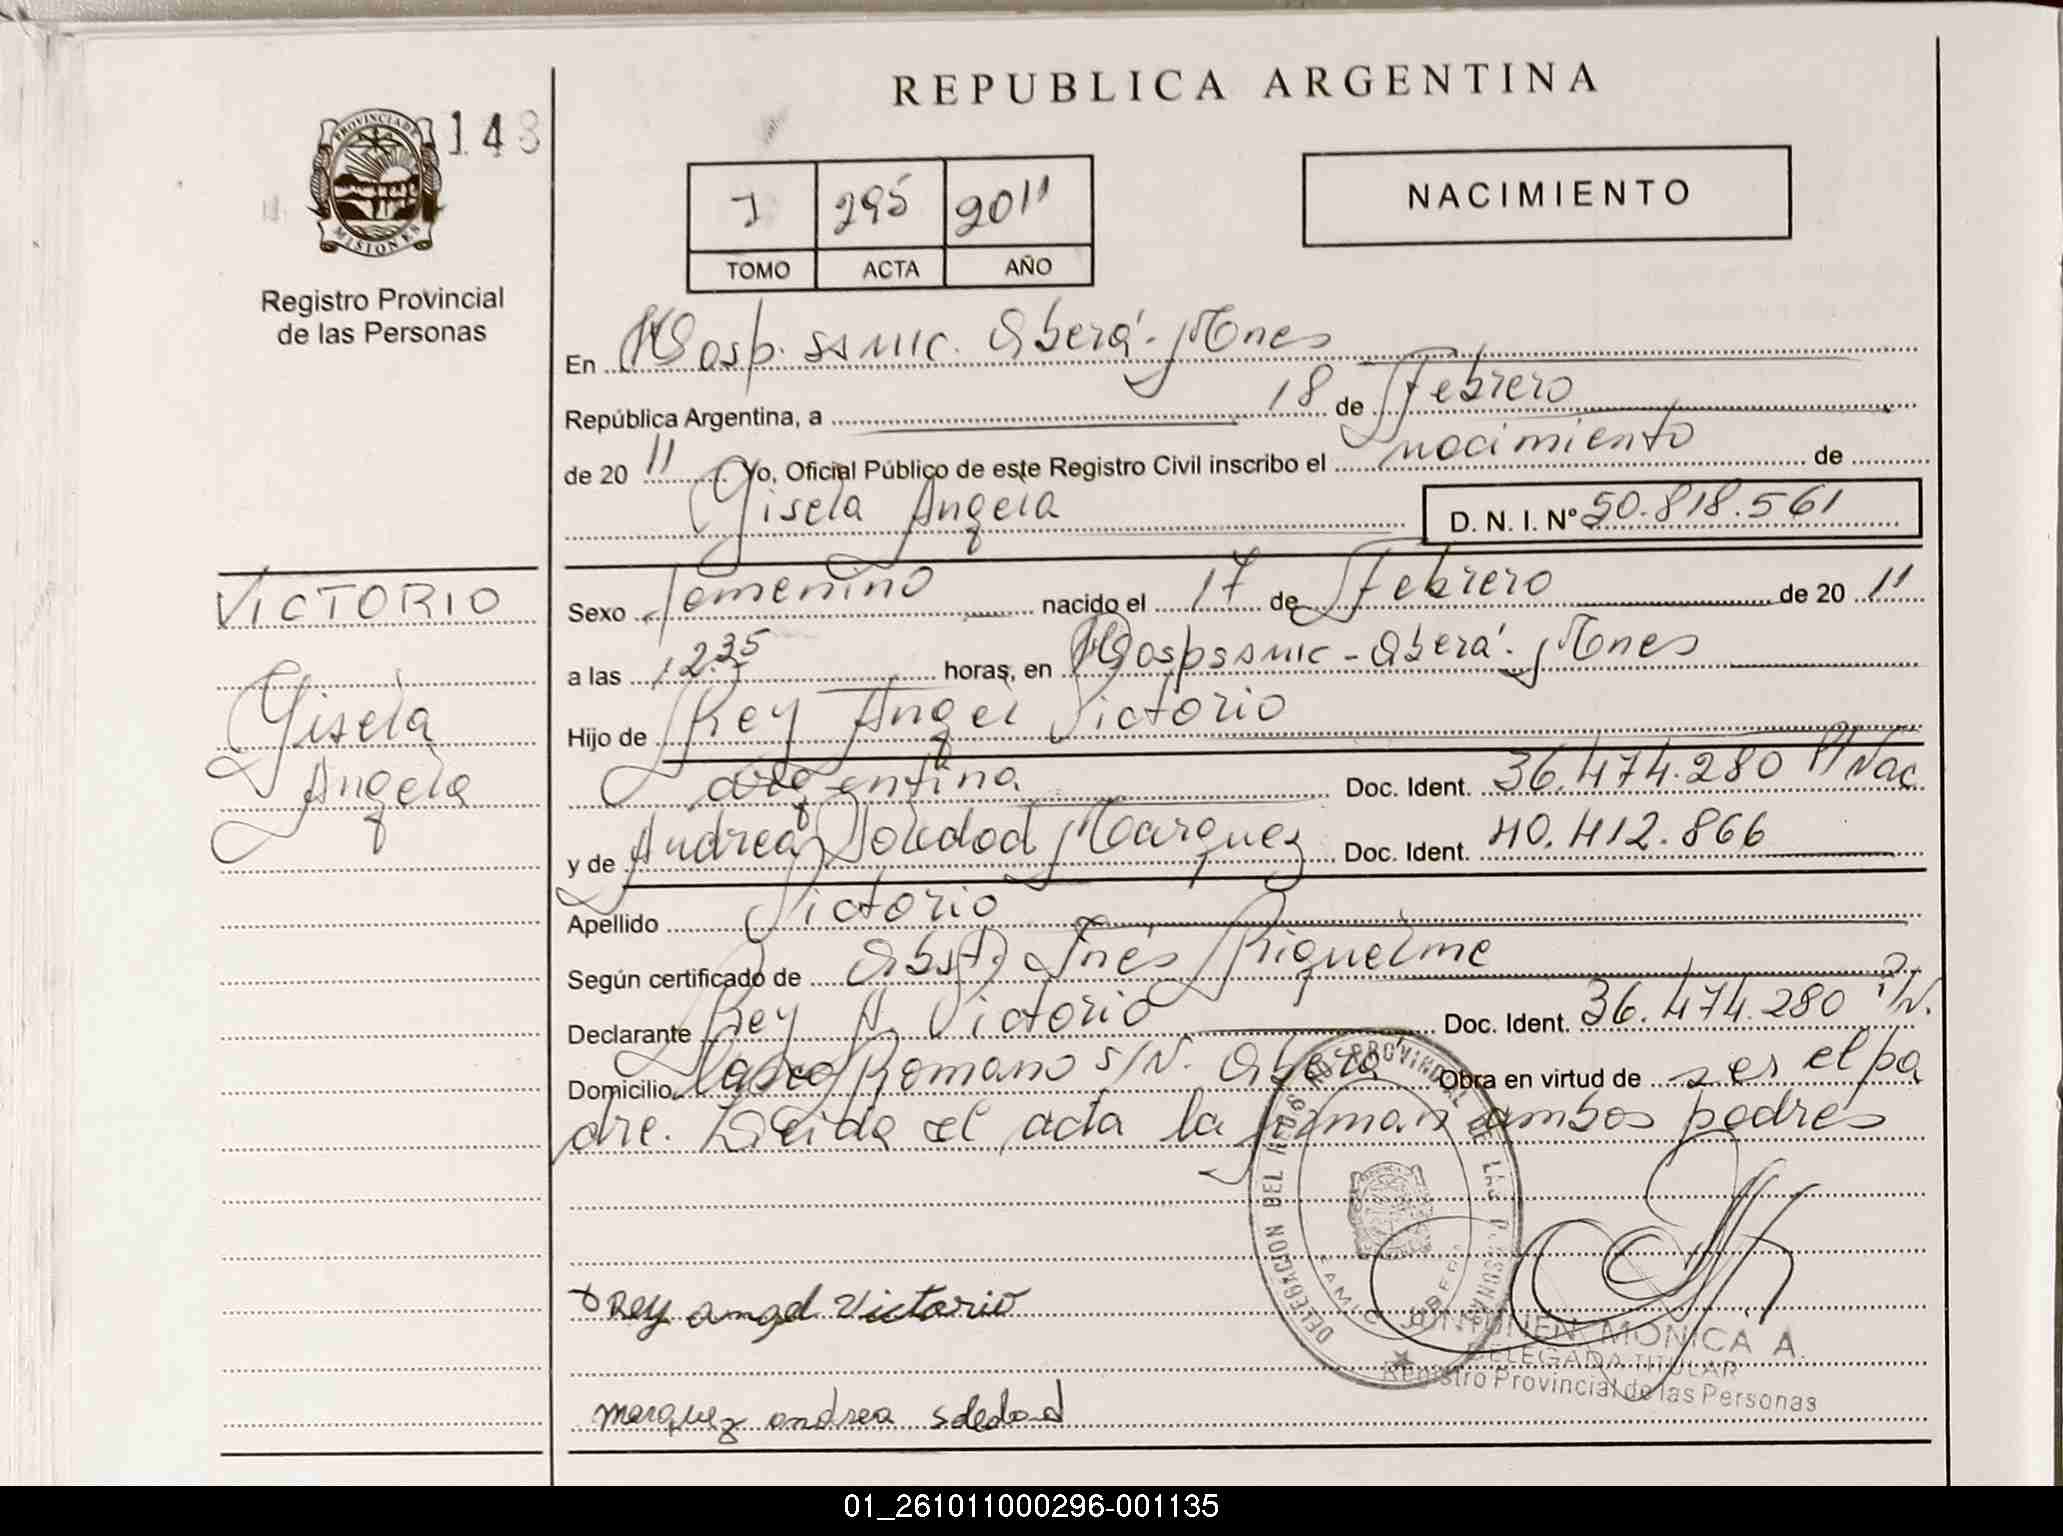 REPUBLICA ARGENTINA
PROVINCIA DE MISIONES
148
Registro Provincial
de las Personas
I 295 2011
TOMO ACTA AÑO
NACIMIENTO
En Hosp. SSMIC. Oberá. Mnes
República Argentina, a 18 de Febrero
de 2011 Yo, Oficial Público de este Registro Civil inscribo el nacimiento de
Gisela Angela D. N. I. Nº 50.818.561
VICTORIO
Gisela
Angela
Sexo femenino nacido el 17 de Febrero de 2011
a las 12.35 horas, en Hosp SSMIC - Oberá. Mnes
Hijo de Rey Angel Victorio
argentina Doc. Ident. 36.474.280
y de Andrea Soledad Marquez Doc. Ident. 40.412.866
Apellido Victorio
Según certificado de Obst. Inés Riquelme
Declarante Rey A. Victorio Doc. Ident. 36.474.280
Domicilio Romano S/N. Oberá Obra en virtud de s er el pa
dre. Leida el acta la firman ambos padres
DELEGACION DEL REGISTRO PROVINCIAL DE LAS PERSONAS
Rey angel Victorio
MONICA A.
DELEGADA TITULAR
Registro Provincial de las Personas
marquez andrea soledad
01_261011000296-001135